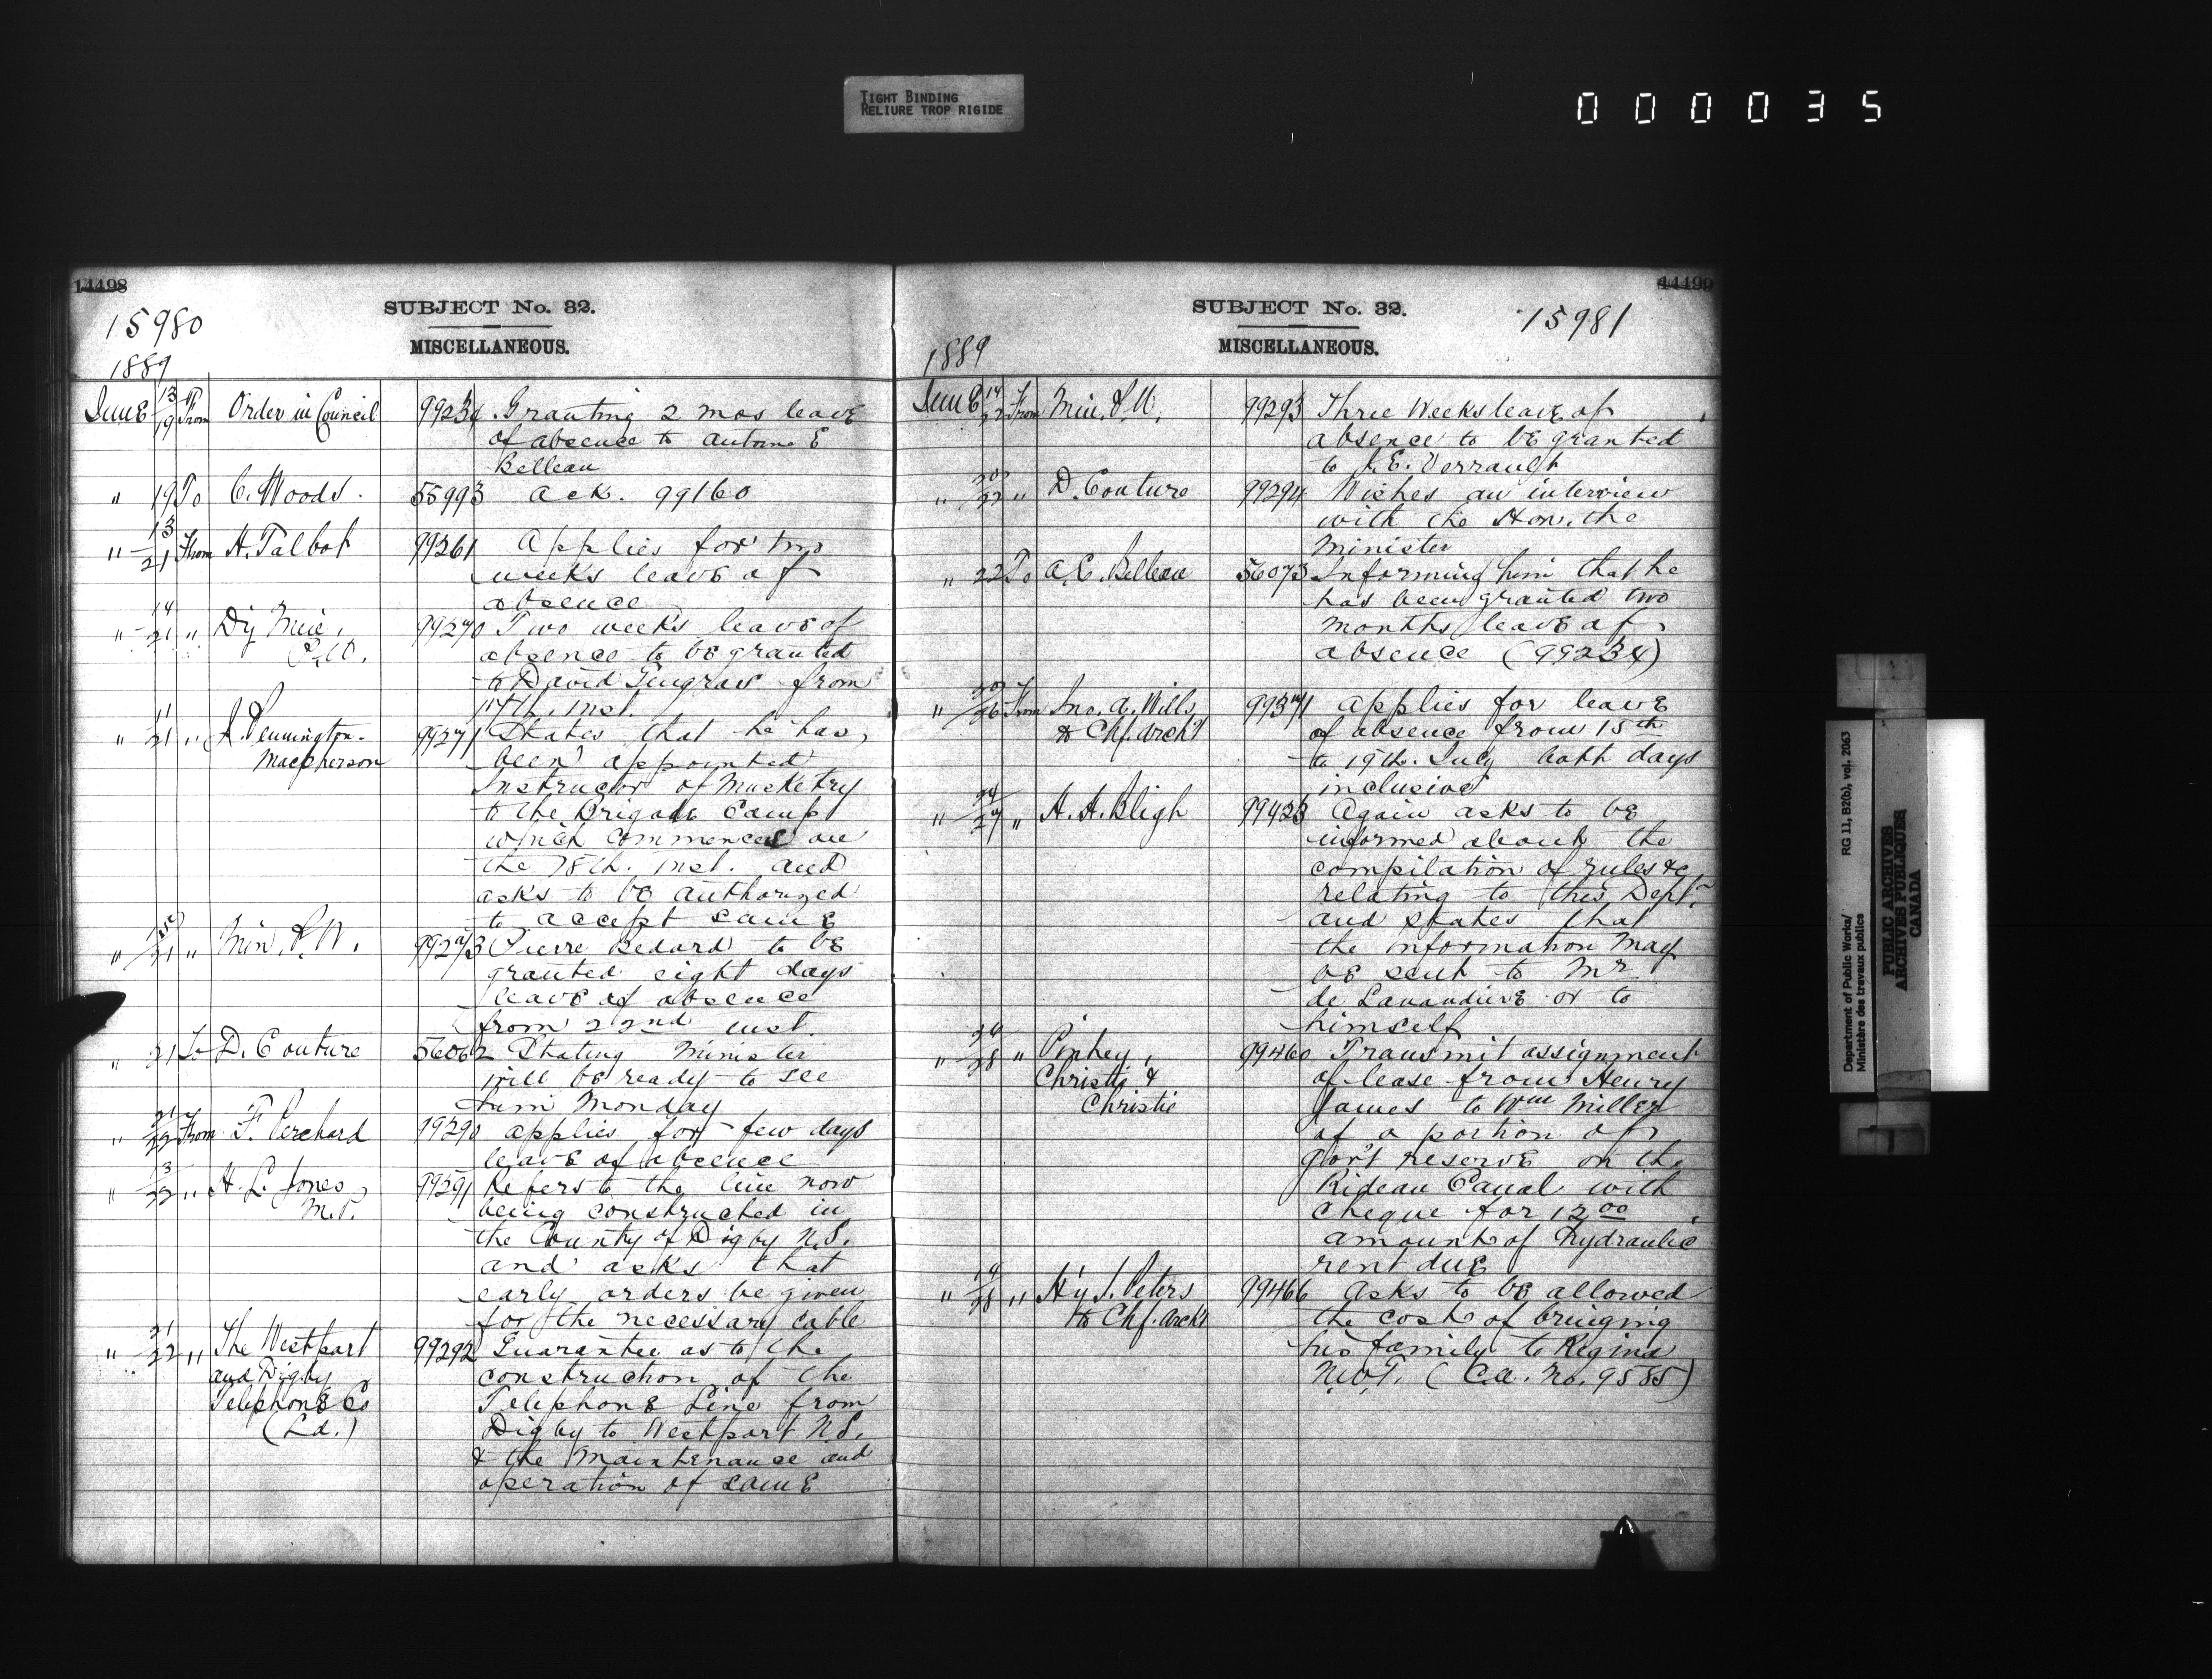 TIGHT BINDING
RELIURE TROP RIGIDE
000035
14498
SUBJECT No. 32.
15980
MISCELLANEOUS.
1889
June 13/19 From Order in Council 99234 Granting 2 mos leave
of absence to Antoine E
Belleau
" 19 To C. Woods. 55993 Ack. 99160
" 13/21 From H. Talbot 99261 Applies for two
weeks leave of
absence
" 14/21 " Dy Min. 99270 Two weeks leave of
P.W. absence to be granted
to David Gingras from
17th. inst.
" 11/21 " J. Pennington- 99271 States that he has
Macpherson been appointed
Instructor of Musketry
to the Brigade Camp
which commences on
the 18th. inst. and
asks to be authorized
to accept same
" /21 " Min. P.W. 99273 Pierre Bedard to be
granted eight days
leave of absence
from 22nd inst.
" 21 To D. Couture 56062 Stating Minister
will be ready to see
him Monday
" 21/22 From F. Perchard 99290 Applies for few days
leave of absence
" 13/22 " H. L. Jones 99291 Refers to the line now
M.P. being constructed in
the County of Digby N.S.
and asks that
early orders be given
for the necessary cable
" 21/22 " The Westport 99292 Guarantee as to the
and Digby construction of the
Telephone Co Telephone Line from
(Ld.) Digby to Westport N.S.
& the maintenance and
operation of same
14499
SUBJECT No. 32.
15981
MISCELLANEOUS.
1889
June 14/22 From Min. P.W. 99293 Three Weeks leave of
absence to be granted
to J. E. Verrault
" 20/22 " D. Couture 99294 Wishes an interview
with the Hon. the
Minister
" 22 To A. E. Belleau 56073 Informing him that he
has been granted two
months leave of
absence (99234)
" /26 From Jno. A. Wills 99371 Applies for leave
to Chf. Archt of absence from 15th
to 19th. July both days
inclusive
" 24/27 " H. H. Bligh 99423 Again asks to be
informed about the
compilation of rules &c
relating to this Dept.
and states that
the information may
be sent to Mr
de Lanaudiere or to
himself
" /28 " Pinhey, 99460 Transmit assignment
Christie & of lease from Henry
Christie James to Wm Miller
of a portion of
gov't reserve on the
Rideau Canal with
cheque for 12.00
amount of hydraulic
rent due
" /28 " H'y J. Peters 99466 Asks to be allowed
to Chf. Archt the cost of bringing
his family to Regina
N.W.T. (C.A. No. 9585)
Department of Public Works/
Ministère des travaux publics
RG 11, B2(b), vol. 2063
PUBLIC ARCHIVES
ARCHIVES PUBLIQUES
CANADA